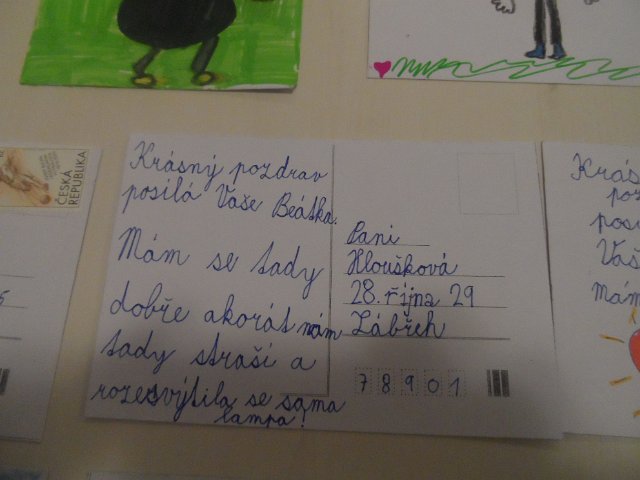 ČESKÁ
REPUBLIKA
Krásný pozdrav
posílá Vaše Beátka.
Mám se tady
dobře akorát nám
tady straší a
rozesvýtila se sama
lampa!
Paní
Hloušková
28. října 29
Zábřeh
78901
Krás
poz
posí
Vaš
mám